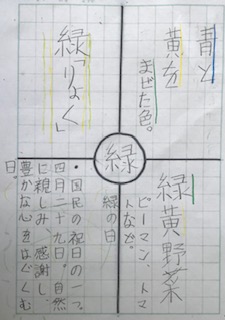 青と
黄を
まぜた色。
緑「りょく」
緑
緑黄野菜
ピーマン、トマ
トなど。
緑の日
・国民の祝日の一つ。
四月二十九日。自然
に親しみ、感謝し
豊かな心をはぐくむ
日。